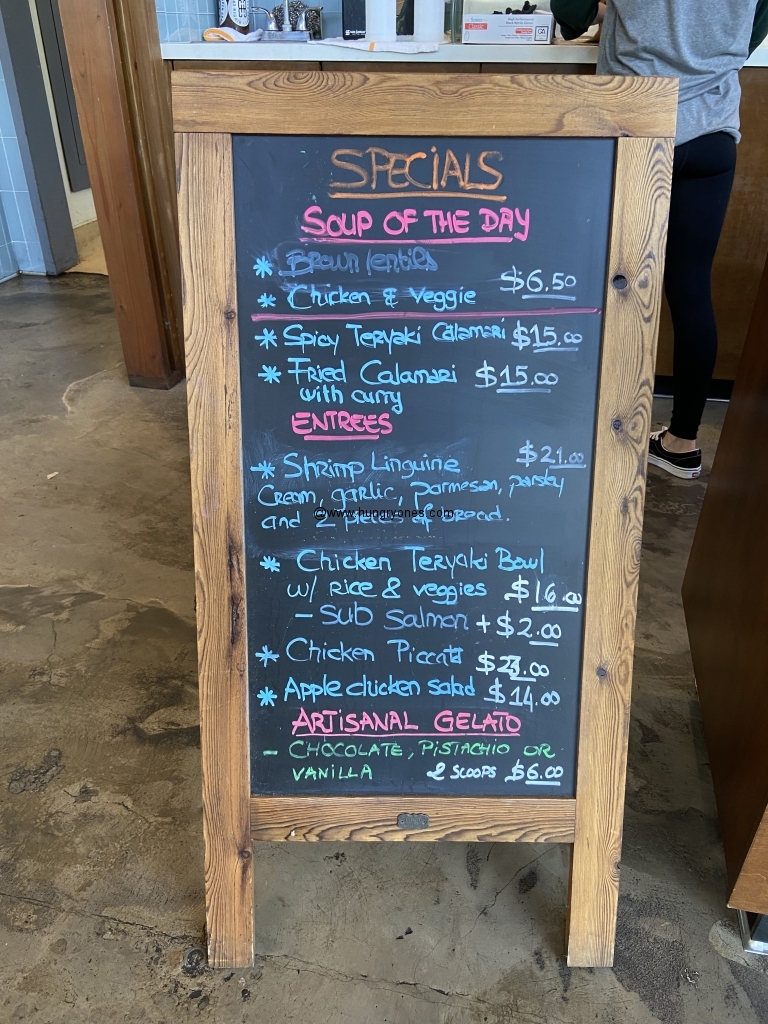 SPECIALS
SOUP OF THE DAY
* Brown lentils
* Chicken & Veggie $6.50
* Spicy Teryaki Calamari $15.00
* Fried Calamari $15.00
with curry
ENTREES
* Shrimp Linguine $21.00
Cream, garlic, parmesan, parsley
and 2 pieces of bread.
©www.hungryones.com
* Chicken Teryaki Bowl
w/ Rice & veggies $16.00
- SUB Salmon + $2.00
* Chicken Piccata $23.00
* Apple chicken salad $14.00
ARTISANAL GELATO
- CHOCOLATE, PISTACHIO OR
VANILLA 2 SCOOPS $6.00